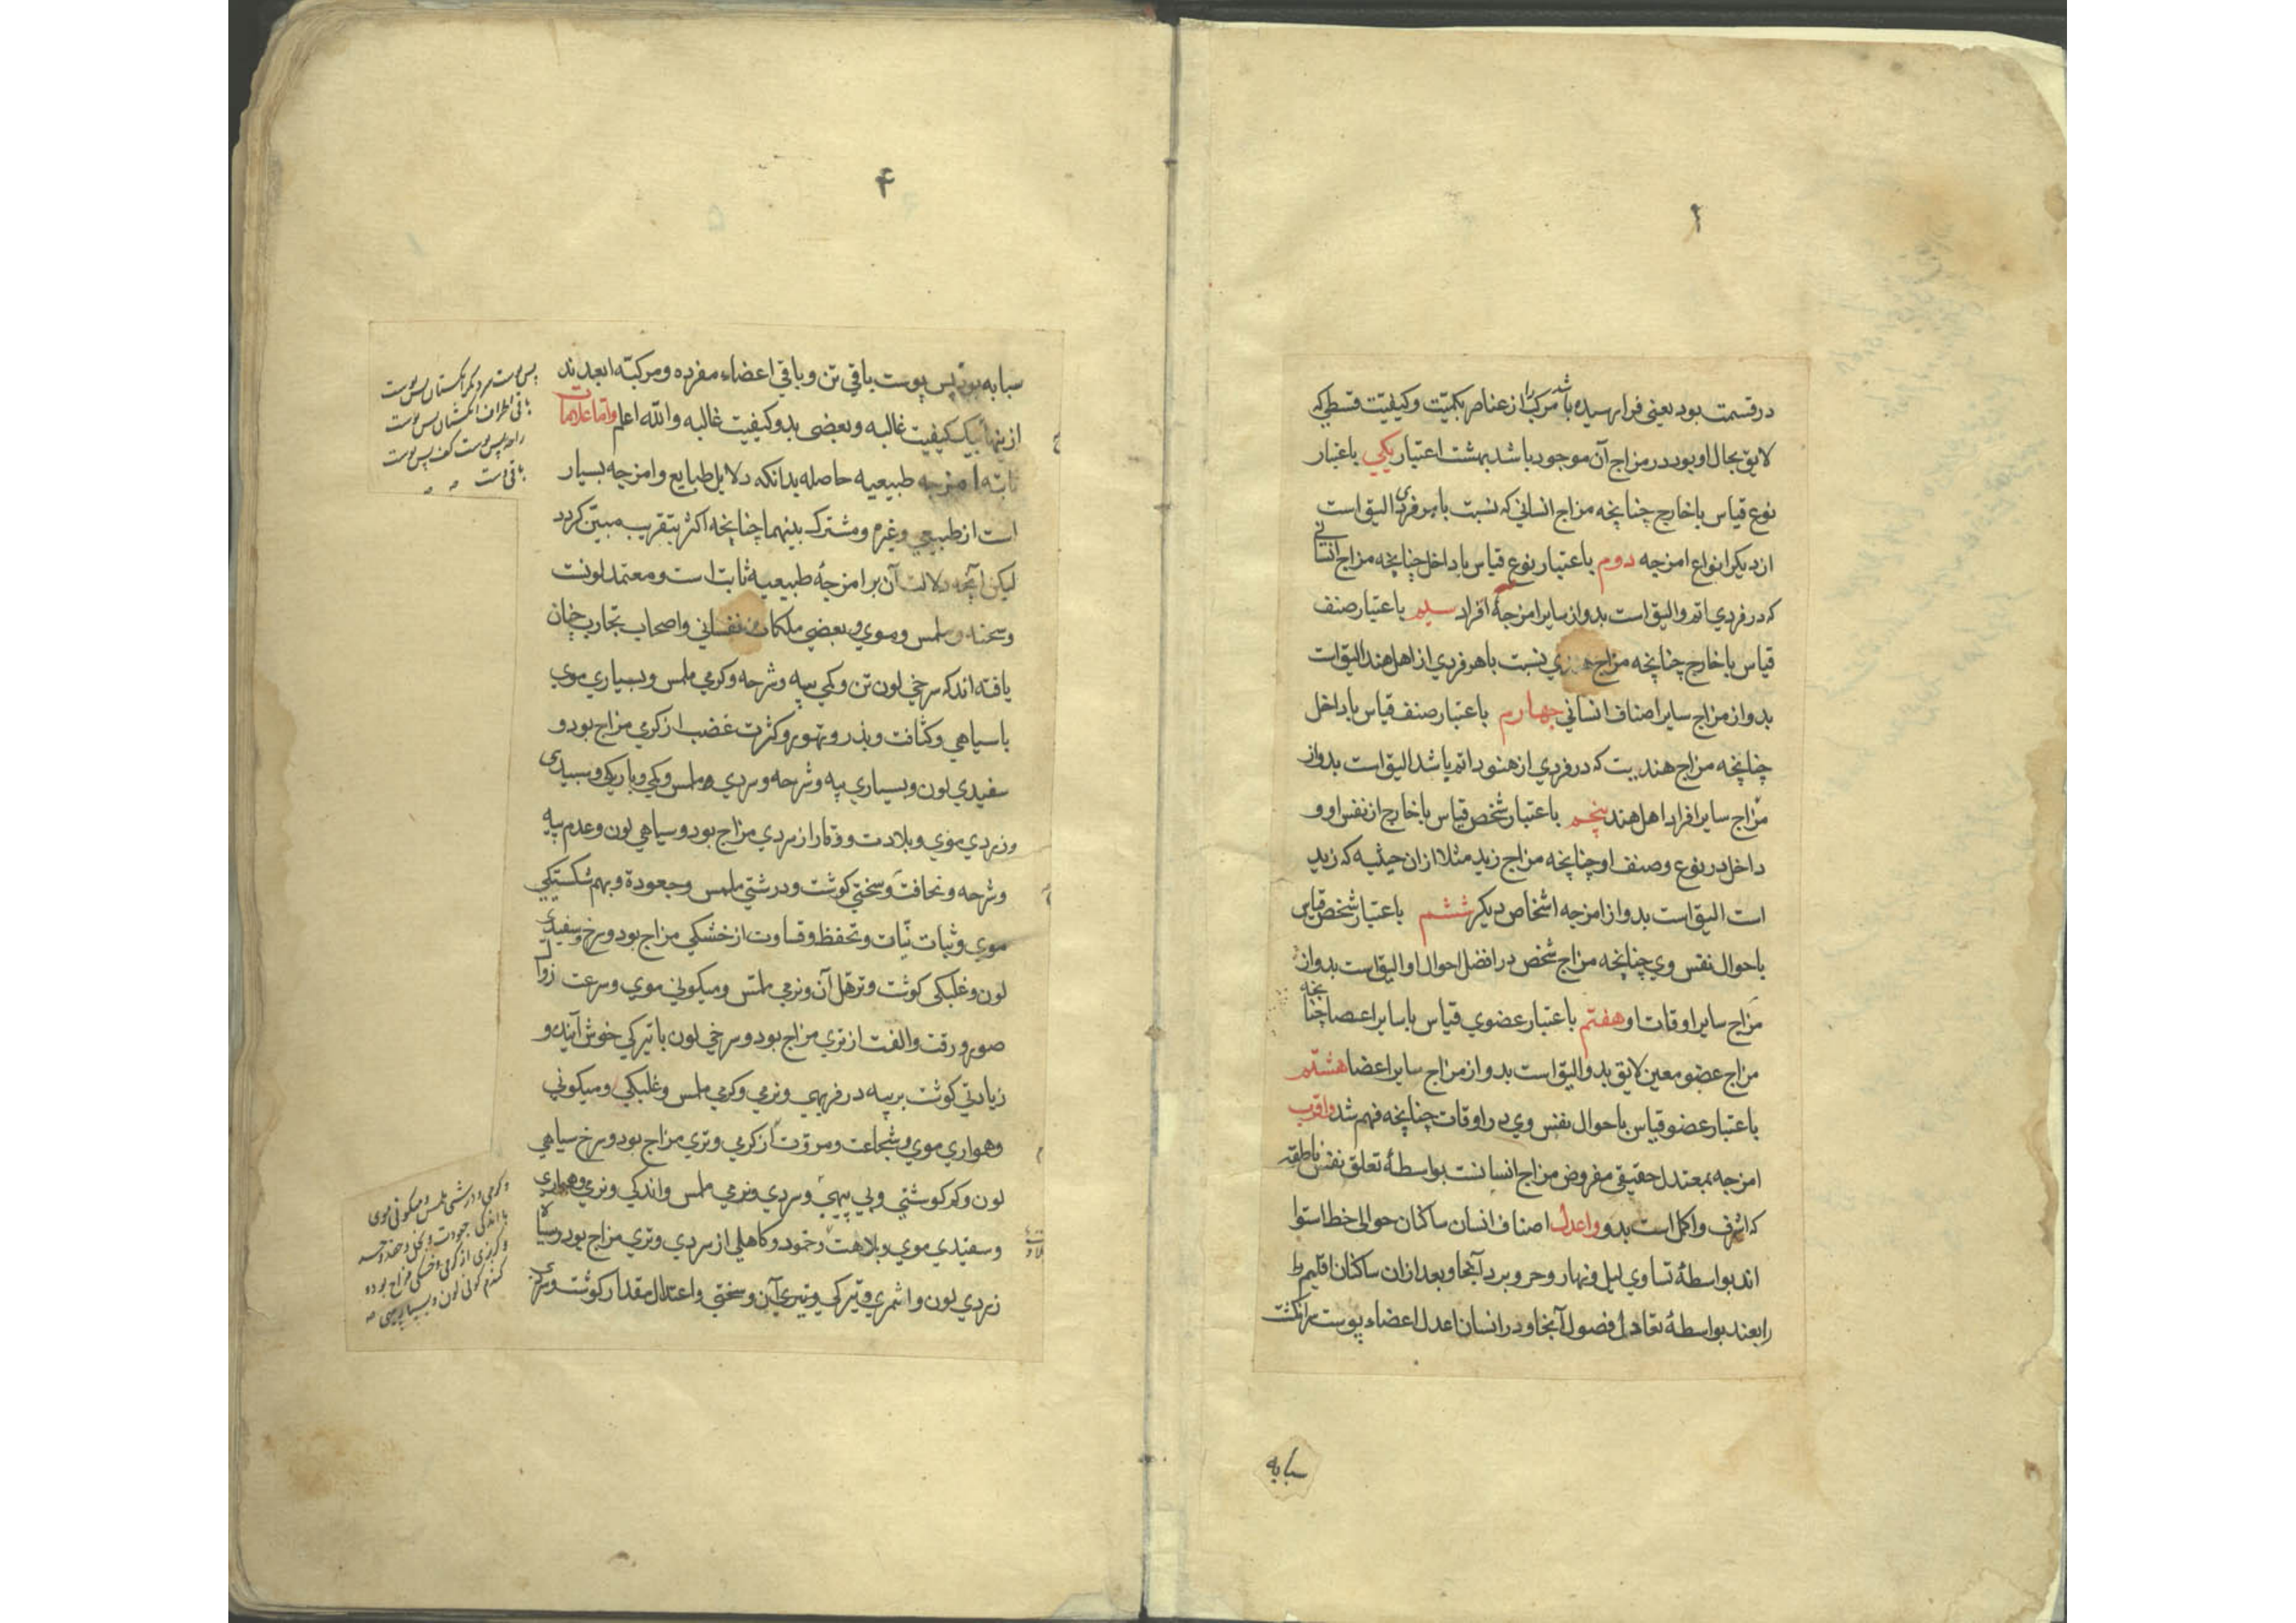 در قسمت بود یعنی فرا رسیده باشد مرکب را از عناصر بکمیّت و کیفیّت قسطی که
لایق بحال او بود در مزاج آن موجود باشد بهشت اعتبار یکی باعتبار
نوع قیاس با خارج چنانچه مزاج انسانی که نسبت با هر فردی الیق است
از دیکر انواع امزجه دوم باعتبار نوع قیاس با داخل چنانچه مزاج انسانی
که در فردی اتم و الیق است بدو از سایر امزجهٔ افراد سیم باعتبار صنف
قیاس با خارج چنانچه مزاج هندی نسبت با هر فردی از اهل هند الیق است
بدو از مزاج سایر اصناف انسانی چهارم باعتبار صنف قیاس با داخل
چنانچه مزاج هندیست که در فردی از هنود اتم باشد الیق است بدو از
مزاج سایر افراد اهل هند پنجم باعتبار شخص قیاس با خارج از نفس او و
داخل در نوع و صنف او چنانچه مزاج زید مثلا از ان حیثیه که زید
است الیق است بدو از امزجه اشخاص دیکر ششم باعتبار شخص قیاس
باحوال نفس وی چنانچه مزاج شخص در افضل احوال او الیق است بدو از
مزاج سایر اوقات او هفتم باعتبار عضوی قیاس با سایر اعضا چنانچه
مزاج عضو معین لایق بدو الیق است بدو از مزاج سایر اعضا هشتم
باعتبار عضو قیاس باحوال نفس وی در اوقات چنانچه فهم شد واقرب
امزجه بمعتدل حقیقی مفروض مزاج انسانست بواسطهٔ تعلق نفس ناطقه
که اشرف و اکمل است بدو و اعدل اصناف انسان ساکنان حوالی خط استوا
اند بواسطهٔ تساوی لیل و نهار و حر و برد آنجا و بعد از ان ساکنان اقلیم
رابعند بواسطهٔ تعادل فصول آنجا و در انسان اعدل اعضاء پوست سر انکشت
سبابه
۴
سبابه بود پس پوست باقی تن و باقی اعضاء مفرده و مرکبّه ابعدند
از ینها بیک کیفیت غالبه و بعضی بدو کیفیت غالبه والله اعلم واما علامات
امزجه طبیعیه حاصله بدانکه دلایل طبایع و امزجه بسیار
است از طبیعی و غیره و مشترک بینهما چنانچه اکثر بتقریب مبیّن کردد
لیکن آنچه دلالت آن بر امزجهٔ طبیعیه ثابت است و معتمد لونست
و سحنه و ملمس و موی و بعضی ملکات نفسانی و اصحاب تجارب چنان
یافته اند که سرخی لون تن و کمی پیه و شرحه و کرمی ملمس و بسیاری موی
با سیاهی و کثافت و تهور و کثرت غضب از کرمی مزاج بود و
سفیدی لون و بسیاری پیه و شرحه و سردی ملمس و کمی و باریکی و سبیدی
و زردی موی و بلادت و وقار از سردی مزاج بود و سیاهی لون و عدم پیه
و شرحه و نحافت و سختی کوشت و درشتی ملمس و جعودة و بهم شکستیکی
موی و ثبات نیّات و تحفظ و قساوت از خشکی مزاج بود و سرخ و سفیدی
لون و غلبکی کوشت و ترهل آن و نرمی ملمس و میکونی موی و سرعت زوال
صور و رقت و الفت از تری مزاج بود و سرخی لون با تیرکی خوش آینده و
زیادتی کوشت بر پیه در فربهی و نرمی و کرمی ملمس و غلبکی و میکونی
و همواری موی و شجاعت و مروّت از کرمی و تری مزاج بود و سرخ سیاهی
لون و کم کوشتی و بی پیهی و سردی و نرمی ملمس و اندکی و نرمی و همواری
و سفیدی موی و بلاهت و خمود و کاهلی از سردی و تری مزاج بود و سیاه
زردی لون و تیرکی آن و سختی و اعتدال مقدار کوشت
باقی اطراف انکشتان پس پوست
راحه پس پوست کف پس پوست
و کرمی و درشتی ملمس و میکونی موی